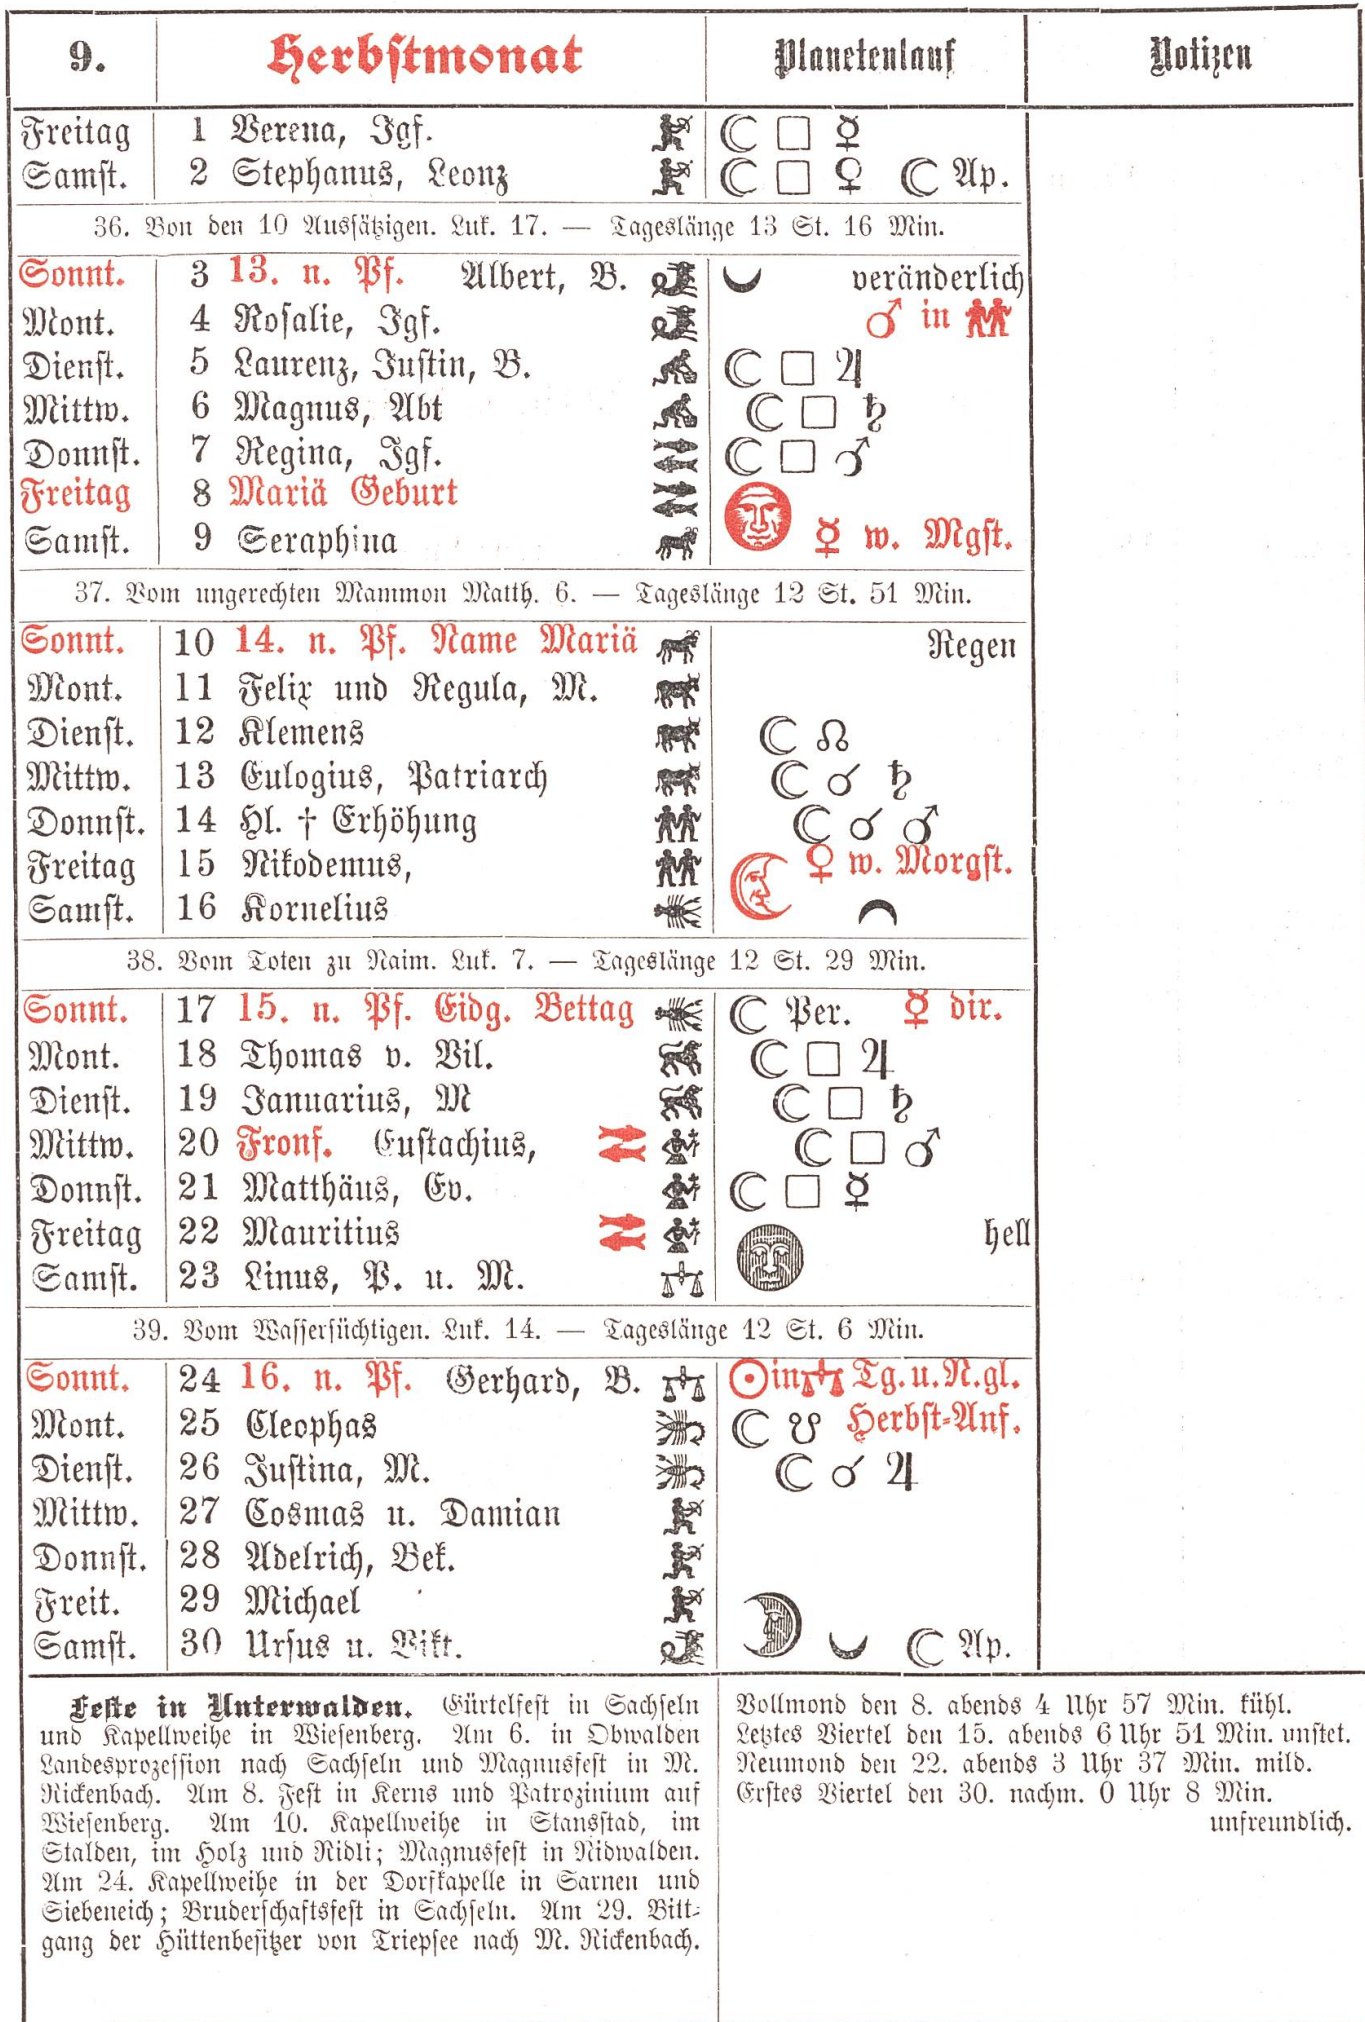 9. Herbstmonat Planetenlauf Notizen
Freitag 1 Verena, Jgf. ☾ □ ☿
Samst. 2 Stephanus, Leonz ☾ □ ♀ ☾ Ap.
36. Von den 10 Aussätzigen. Luk. 17. — Tageslänge 13 St. 16 Min.
Sonnt. 3 13. n. Pf. Albert, B. veränderlich
Mont. 4 Rosalie, Jgf. ♂ in
Dienst. 5 Laurenz, Justin, B. ☾ □ ♃
Mittw. 6 Magnus, Abt ☾ □ ♄
Donnst. 7 Regina, Jgf. ☾ □ ♂
Freitag 8 Mariä Geburt
Samst. 9 Seraphina ☿ w. Mgst.
37. Vom ungerechten Mammon Matth. 6. — Tageslänge 12 St. 51 Min.
Sonnt. 10 14. n. Pf. Name Mariä Regen
Mont. 11 Felix und Regula, M.
Dienst. 12 Klemens ☾ ☊
Mittw. 13 Eulogius, Patriarch ☾ ☌ ♄
Donnst. 14 Hl. † Erhöhung ☾ ☌ ♂
Freitag 15 Nikodemus, ♀ w. Morgst.
Samst. 16 Kornelius
38. Vom Toten zu Naim. Luk. 7. — Tageslänge 12 St. 29 Min.
Sonnt. 17 15. n. Pf. Eidg. Bettag ☾ Per. ☿ dir.
Mont. 18 Thomas v. Vil. ☾ □ ♃
Dienst. 19 Januarius, M ☾ □ ♄
Mittw. 20 Fronf. Eustachius, ☾ □ ♂
Donnst. 21 Matthäus, Ev. ☾ □ ☿
Freitag 22 Mauritius hell
Samst. 23 Linus, P. u. M.
39. Vom Wassersüchtigen. Luk. 14. — Tageslänge 12 St. 6 Min.
Sonnt. 24 16. n. Pf. Gerhard, B. ☉ in ♎ Tg. u. N. gl.
Mont. 25 Cleophas ☾ ☋ Herbst-Anf.
Dienst. 26 Justina, M. ☾ ☌ ♃
Mittw. 27 Cosmas u. Damian
Donnst. 28 Adelrich, Bek.
Freit. 29 Michael
Samst. 30 Ursus u. Vikt. ☾ Ap.
Feste in Unterwalden. Gürtelfest in Sachseln
und Kapellweihe in Wiesenberg. Am 6. in Obwalden
Landesprozession nach Sachseln und Magnusfest in M.
Rickenbach. Am 8. Fest in Kerns und Patrozinium auf
Wiesenberg. Am 10. Kapellweihe in Stansstad, im
Stalden, im Holz und Ridli; Magnusfest in Nidwalden.
Am 24. Kapellweihe in der Dorfkapelle in Sarnen und
Siebeneich; Bruderschaftsfest in Sachseln. Am 29. Bitt-
gang der Hüttenbesitzer von Triepsee nach M. Rickenbach.
Vollmond den 8. abends 4 Uhr 57 Min. kühl.
Letztes Viertel den 15. abends 6 Uhr 51 Min. unstet.
Neumond den 22. abends 3 Uhr 37 Min. mild.
Erstes Viertel den 30. nachm. 0 Uhr 8 Min.
unfreundlich.